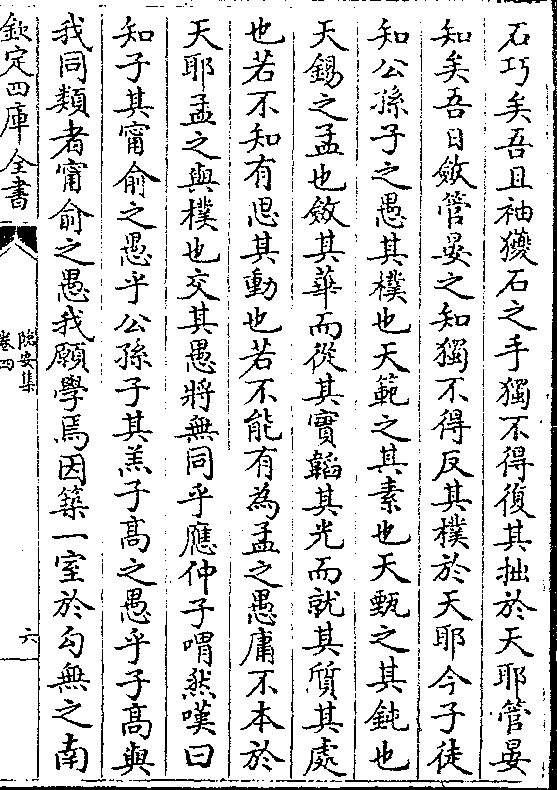 石巧矣吾且袖獶石之手獨不得復其拙於天耶管晏
知矣吾日斂管晏之知獨不得反其樸於天耶今子徒
知公孫子之愚其樸也天範之其素也天甄之其鈍也
天錫之孟也斂其華而從其實韜其光而就其質其處
也若不知有思其動也若不能有為孟之愚庸不本於
天耶孟之與樸也交其愚將無同乎應仲子喟然嘆曰
知子其甯俞之愚乎公孫子其羔子高之愚乎子高與
我同類者甯俞之愚我願學焉因築一室於勾無之南
欽定四庫全書
卷四
六